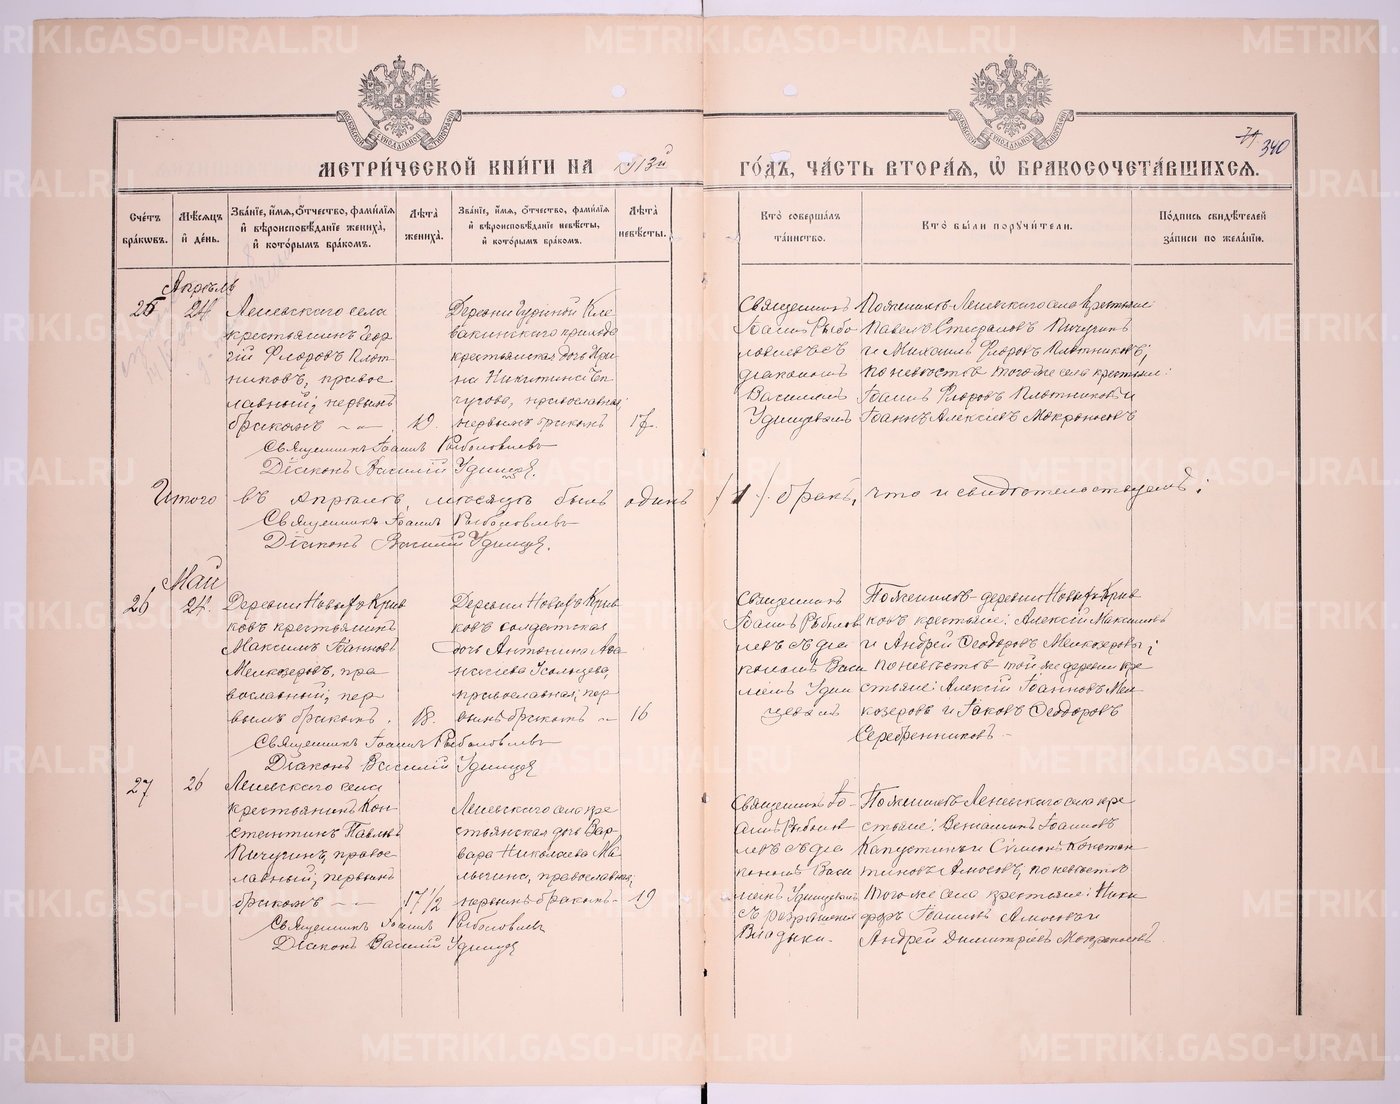 METRIKI.GASO-URAL.RU
МЕТРИ́ЧЕСКОЙ КНИ́ГИ НА 1913й
ГО́ДЪ, ЧА́СТЬ ВТОРА́Я, Ѡ҆ БРАКОСОЧЕТА́ВШИХСЯ.
340
Сче́тъ бра́ковъ.
Мѣ́сяцъ и҆ де́нь.
Зва́нїе, и҆́мя, ѻ҆́тчество, фами́лїя и҆ вѣроисповѣ́данїе жениха̀, и҆ кото́рымъ бра́комъ.
Лѣ́та жениха̀.
Зва́нїе, и҆́мя, ѻ҆́тчество, фами́лїя и҆ вѣроисповѣ́данїе невѣ́сты, и҆ кото́рымъ бра́комъ.
Лѣ́та невѣ́сты.
Кто̀ соверша́лъ та́инство.
Кто̀ бы́ли порꙋчи́тели.
По́дпись свидѣ́телей за́писи по жела́нїю.
Апрѣль
25
24
села
крестьянинъ Геор
гій Флоровъ Плот
никовъ, правос
лавный, первымъ
бракомъ
19.
Деревни
крестьянская дочь Ири
на Никитина
православная,
первымъ бракомъ
17.
Священникъ
Іоаннъ Рыбо
ловлевъ съ
діакономъ
Василіемъ
Удинцевымъ
По женихѣ: села крестьяне:
Павелъ Пичугинъ
и Михаилъ Флоровъ Плотниковъ;
по невѣстѣ: того же села крестьяне:
Іоаннъ Флоровъ Плотниковъ и
Іоаннъ Алексіевъ Мокроносовъ
Священникъ Іоаннъ Рыболовлевъ
Діаконъ Василій Удинцевъ.
Итого въ Апрѣлѣ мѣсяцѣ былъ одинъ /1/ бракъ, что и свидѣтельствуемъ:
Священникъ Іоаннъ Рыболовлевъ
Діаконъ Василій Удинцевъ.
Май
26
24.
Деревни Новыхъ Крив
ковъ крестьянинъ
Максимъ Іоанновъ
Мелкозеровъ, пра
вославный, пер
вымъ бракомъ.
18.
Деревни Новыхъ Крив
ковъ солдатская
дочь Антонина Аѳа
насіева Усольцева,
православная, пер
вымъ бракомъ
16
Священникъ
Іоаннъ Рыболов
левъ съ діа
кономъ Васи
ліемъ Удин
цевымъ
По женихѣ: деревни Новыхъ Крив
ковъ крестьяне: Алексій Максимовъ
и Андрей Ѳеодоровъ Мелкозеровы;
по невѣстѣ: той же деревни кре
стьяне: Алексій Іоанновъ Мел
козеровъ и Іаковъ Ѳеодоровъ
Серебренниковъ.
Священникъ Іоаннъ Рыболовлевъ
Діаконъ Василій Удинцевъ
27
26
села
крестьянинъ Кон
стантинъ Павловъ
Пичугинъ, правос
лавный, первымъ
бракомъ
17 1/2
села кре
стьянская дочь Вар
вара Николаева Ма
лыгина, православная,
первымъ бракомъ
19
Священникъ Іо
аннъ Рыболов
левъ съ діа
кономъ Васи
ліемъ Удинцевымъ
съ разрѣшенія
Владыки.
По женихѣ: села кре
стьяне: Веніаминъ Іоанновъ
Капустинъ и Симеонъ Констан
тиновъ Амосовъ, по невѣстѣ
того же села крестьяне: Ники
форъ Іоанновъ Амосовъ и
Андрей Димитріевъ Мокроносовъ.
Священникъ Іоаннъ Рыболовлевъ
Діаконъ Василій Удинцевъ